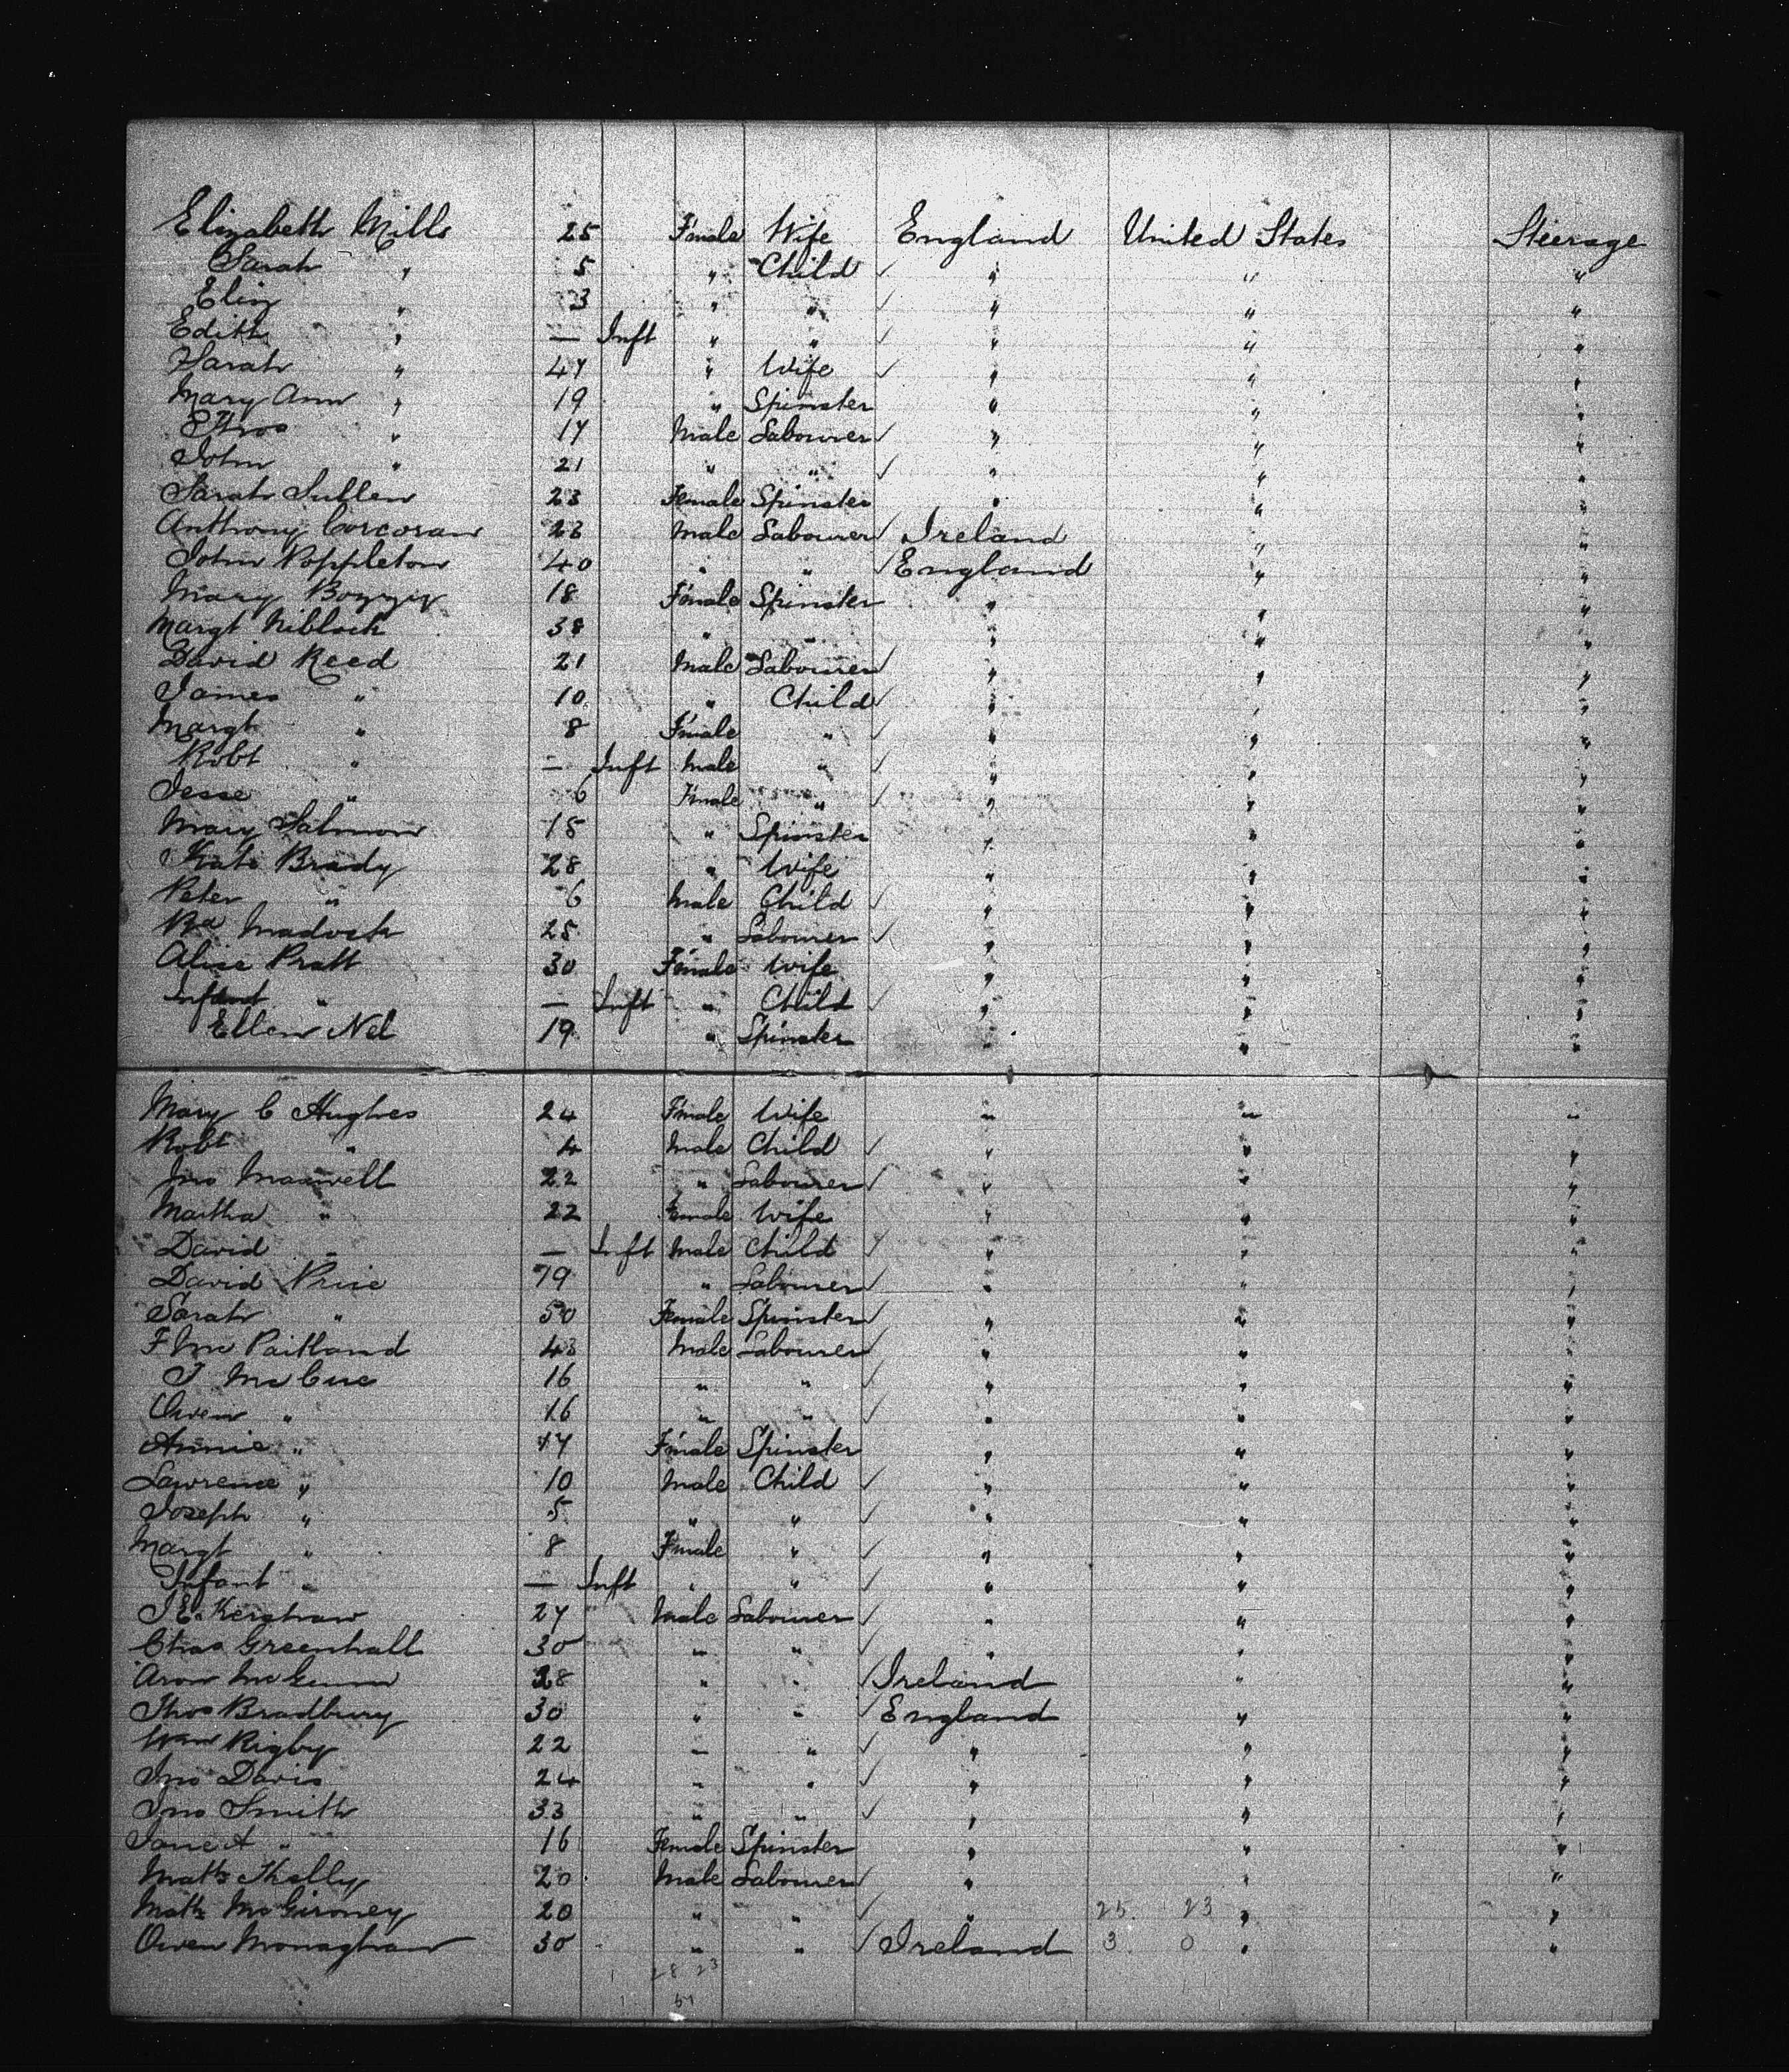 Elizabeth Mills 25 Female Wife England United States Steerage
Sarah " 5 " Child ✓ " " "
Eliz " 3 " " ✓ " " "
Edith " — Inft " " ✓ " " "
Sarah " 47 " Wife ✓ " " "
Mary Ann " 19 " Spinster " " "
Thos " 17 Male Labourer ✓ " " "
John " 21 " " ✓ " " "
Sarah Sullen 23 Female Spinster " " "
Anthony Corcoran 23 Male Labourer ✓ Ireland " "
John Poppleton 40 " " ✓ England " "
Mary 18 Female Spinster " " "
Margt Niblock 38 " " " " "
David Reed 21 Male Labourer ✓ " " "
James " 10 " Child ✓ " " "
Margt " 8 Female " ✓ " " "
Robt " — Inft Male " ✓ " " "
Jesse " 6 Female " ✓ " " "
Mary Salmon 18 " Spinster " " "
Kate Brady 28 " Wife " " "
Peter " 6 Male Child ✓ " " "
Rd 25 " Labourer ✓ " " "
Alice Pratt 30 Female Wife " " "
Infant " — Inft " Child ✓ " " "
Ellen Nel 19 " Spinster " " "
Mary C Hughes 24 Female Wife " " "
Robt " 4 Male Child ✓ " " "
Jno Maxwell 22 " Labourer ✓ " " "
Martha " 22 Female Wife " " "
David " — Inft Male Child ✓ " " "
David Price 79 " Labourer ✓ " " "
Sarah " 50 Female Spinster ✓ " " "
43 Male Labourer ✓ " " "
J McCue 16 " " ✓ " " "
Owen " 16 " " ✓ " " "
Annie " 17 Female Spinster " " "
Lawrence " 10 Male Child ✓ " " "
Joseph " 5 " " ✓ " " "
Margt " 8 Female " ✓ " " "
Infant " — Inft " " ✓ " " "
J E Kershaw 27 Male Labourer ✓ " " "
Chas Greenhall 30 " " ✓ " " "
28 " " ✓ Ireland " "
Thos Bradbury 30 " " ✓ England " "
Wm Rigby 22 " " ✓ " " "
Jno Davis 24 " " ✓ " " "
Jno Smith 33 " " ✓ " " "
Jane A " 16 Female Spinster " " "
Matt Skelly 20 Male Labourer ✓ " " "
Matt McGironey 20 " " ✓ " 25 23 " "
Owen Monaghan 30 " " ✓ Ireland 3 0 " "
1 28 23
1 51